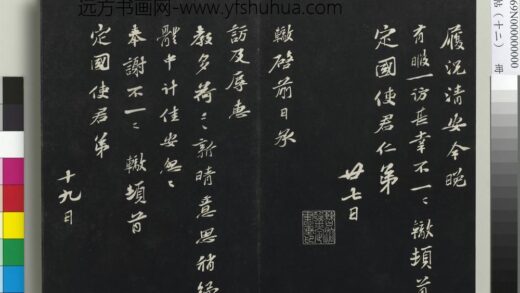 远方书画网-www.yfshuhua.com
履況清安今晚
有暇一訪幸不一〻轍頓首
定國使君仁弟
廿七日
轍啓前日承
訪及厚惠
教多荷〻新晴意思稍
體中計佳安怱〻
奉謝不一〻轍頓首
定國使君弟
十九日
69N00000000000
帖（十二）